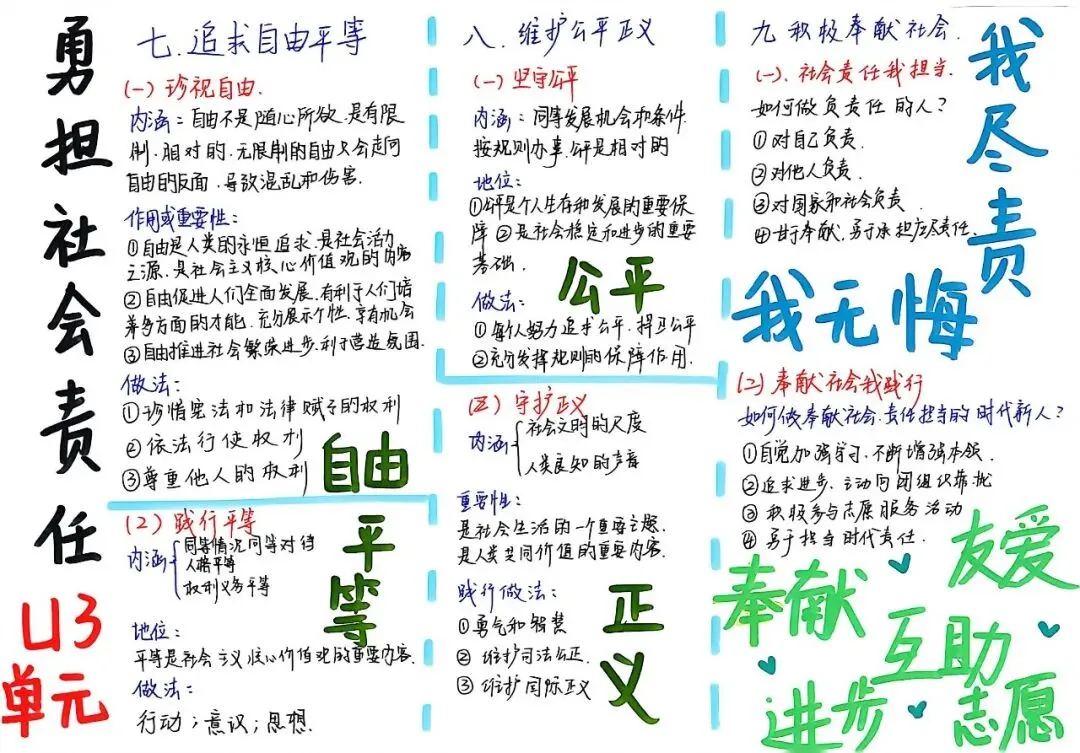 勇担社会责任
U3
单元
七.追求自由平等
(一)珍视自由.
内涵:自由不是随心所欲.是有限
制.相对的.无限制的自由只会走向
自由的反面.导致混乱和伤害.
作用或重要性:
①自由是人类的永恒追求.是社会活力
之源.是社会主义核心价值观的内容
②自由促进人们全面发展.有利于人们培
养多方面的才能.充分展示个性.享有机会
③自由推进社会繁荣进步.利于营造氛围.
做法:
①珍惜宪法和法律赋予的权利
②依法行使权利
③尊重他人的权利
自由
(2)践行平等
内涵
同等情况同等对待
人格平等
权利义务平等
平等
地位:
平等是社会主义核心价值观的重要内容.
做法:
行动;意识;思想.
八.维护公平正义
(一)坚守公平
内涵:同等发展机会和条件
按规则办事.公平是相对的
地位:
①公平是个人生存和发展的重要保
障②是社会稳定和进步的重要
基础.
公平
做法:
①每个人努力追求公平.捍卫公平
②充分发挥规则的保障作用.
守护正义
内涵
社会文明的尺度
人类良知的声音
重要性:
是社会生活的一个重要主题.
是人类共同价值的重要内容.
践行做法:
①勇气和智慧
②维护司法公正.
③维护国际正义
正义
九积极奉献社会.
(一).社会责任我担当.
如何做负责任的人?
①对自己负责.
②对他人负责.
③对国家和社会负责.
④甘于奉献.勇于承担应尽责任.
我尽责
我无悔
(2)奉献社会我践行
如何做奉献社会.责任担当的时代新人?
①自觉加强学习.不断增强本领.
②追求进步.主动向团组织靠拢
③积极参与志愿服务活动
④勇于担当时代责任.
友爱
奉献
互助
进步
志愿